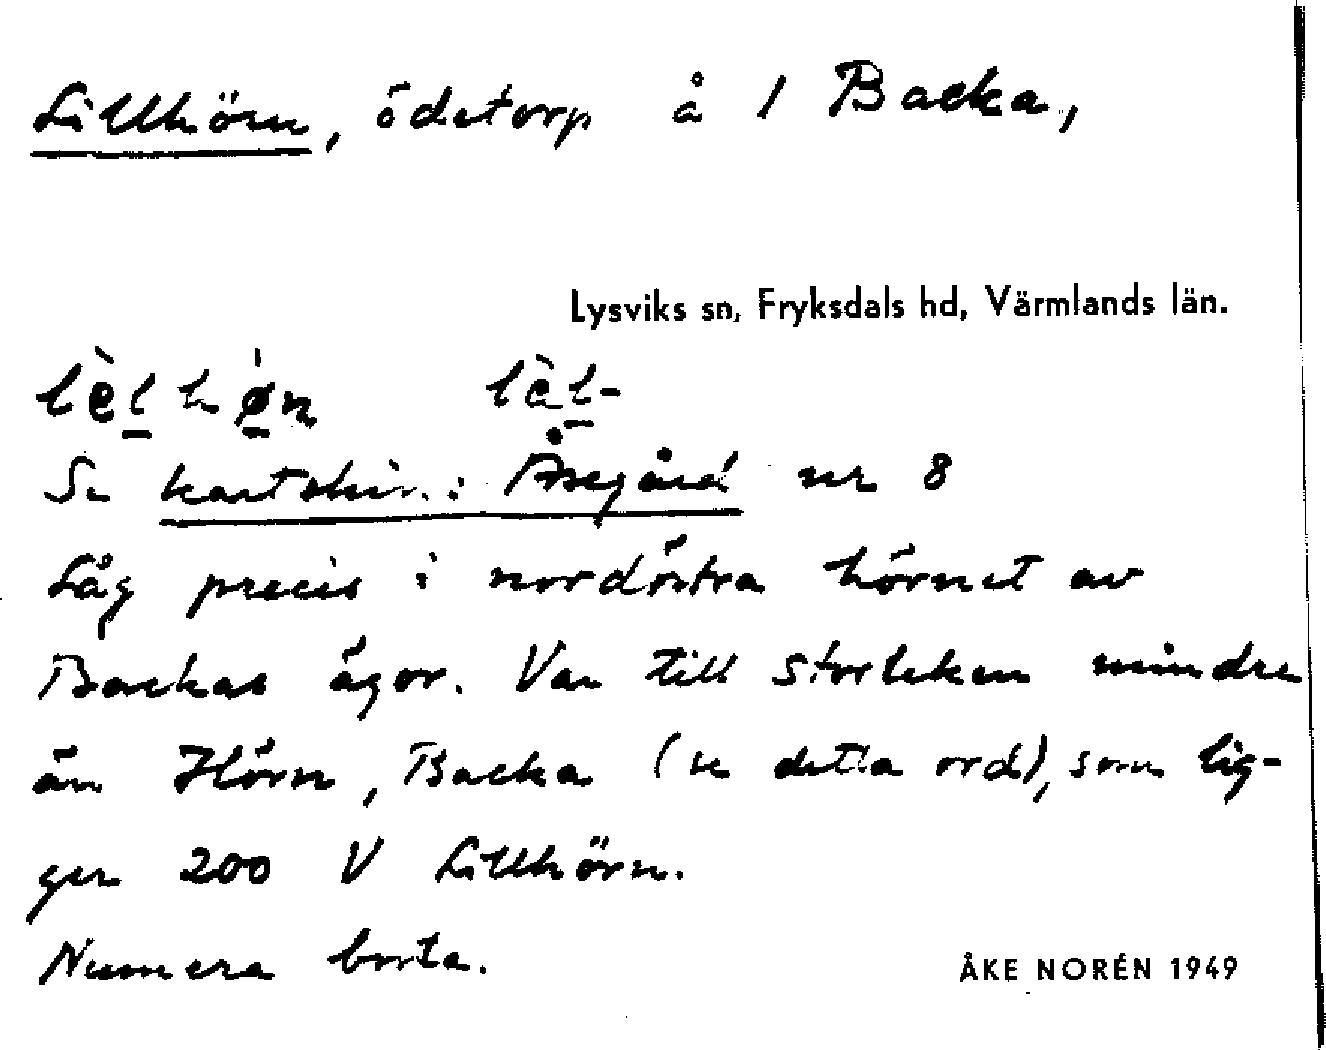 Lillhörn, ödetorp å 1 Backa,
Lysviks sn, Fryksdals hd, Värmlands län.
lèlhǿn lèl-
Se kartskiss.: Åsegård nr 8
Låg precis i nordöstra hörnet av
Backas ägor. Var till storleken mindre
än Hörn, Backa (se detta ord), som lig-
ger 200 V Lillhörn.
Numera borta.
ÅKE NORÉN 1949